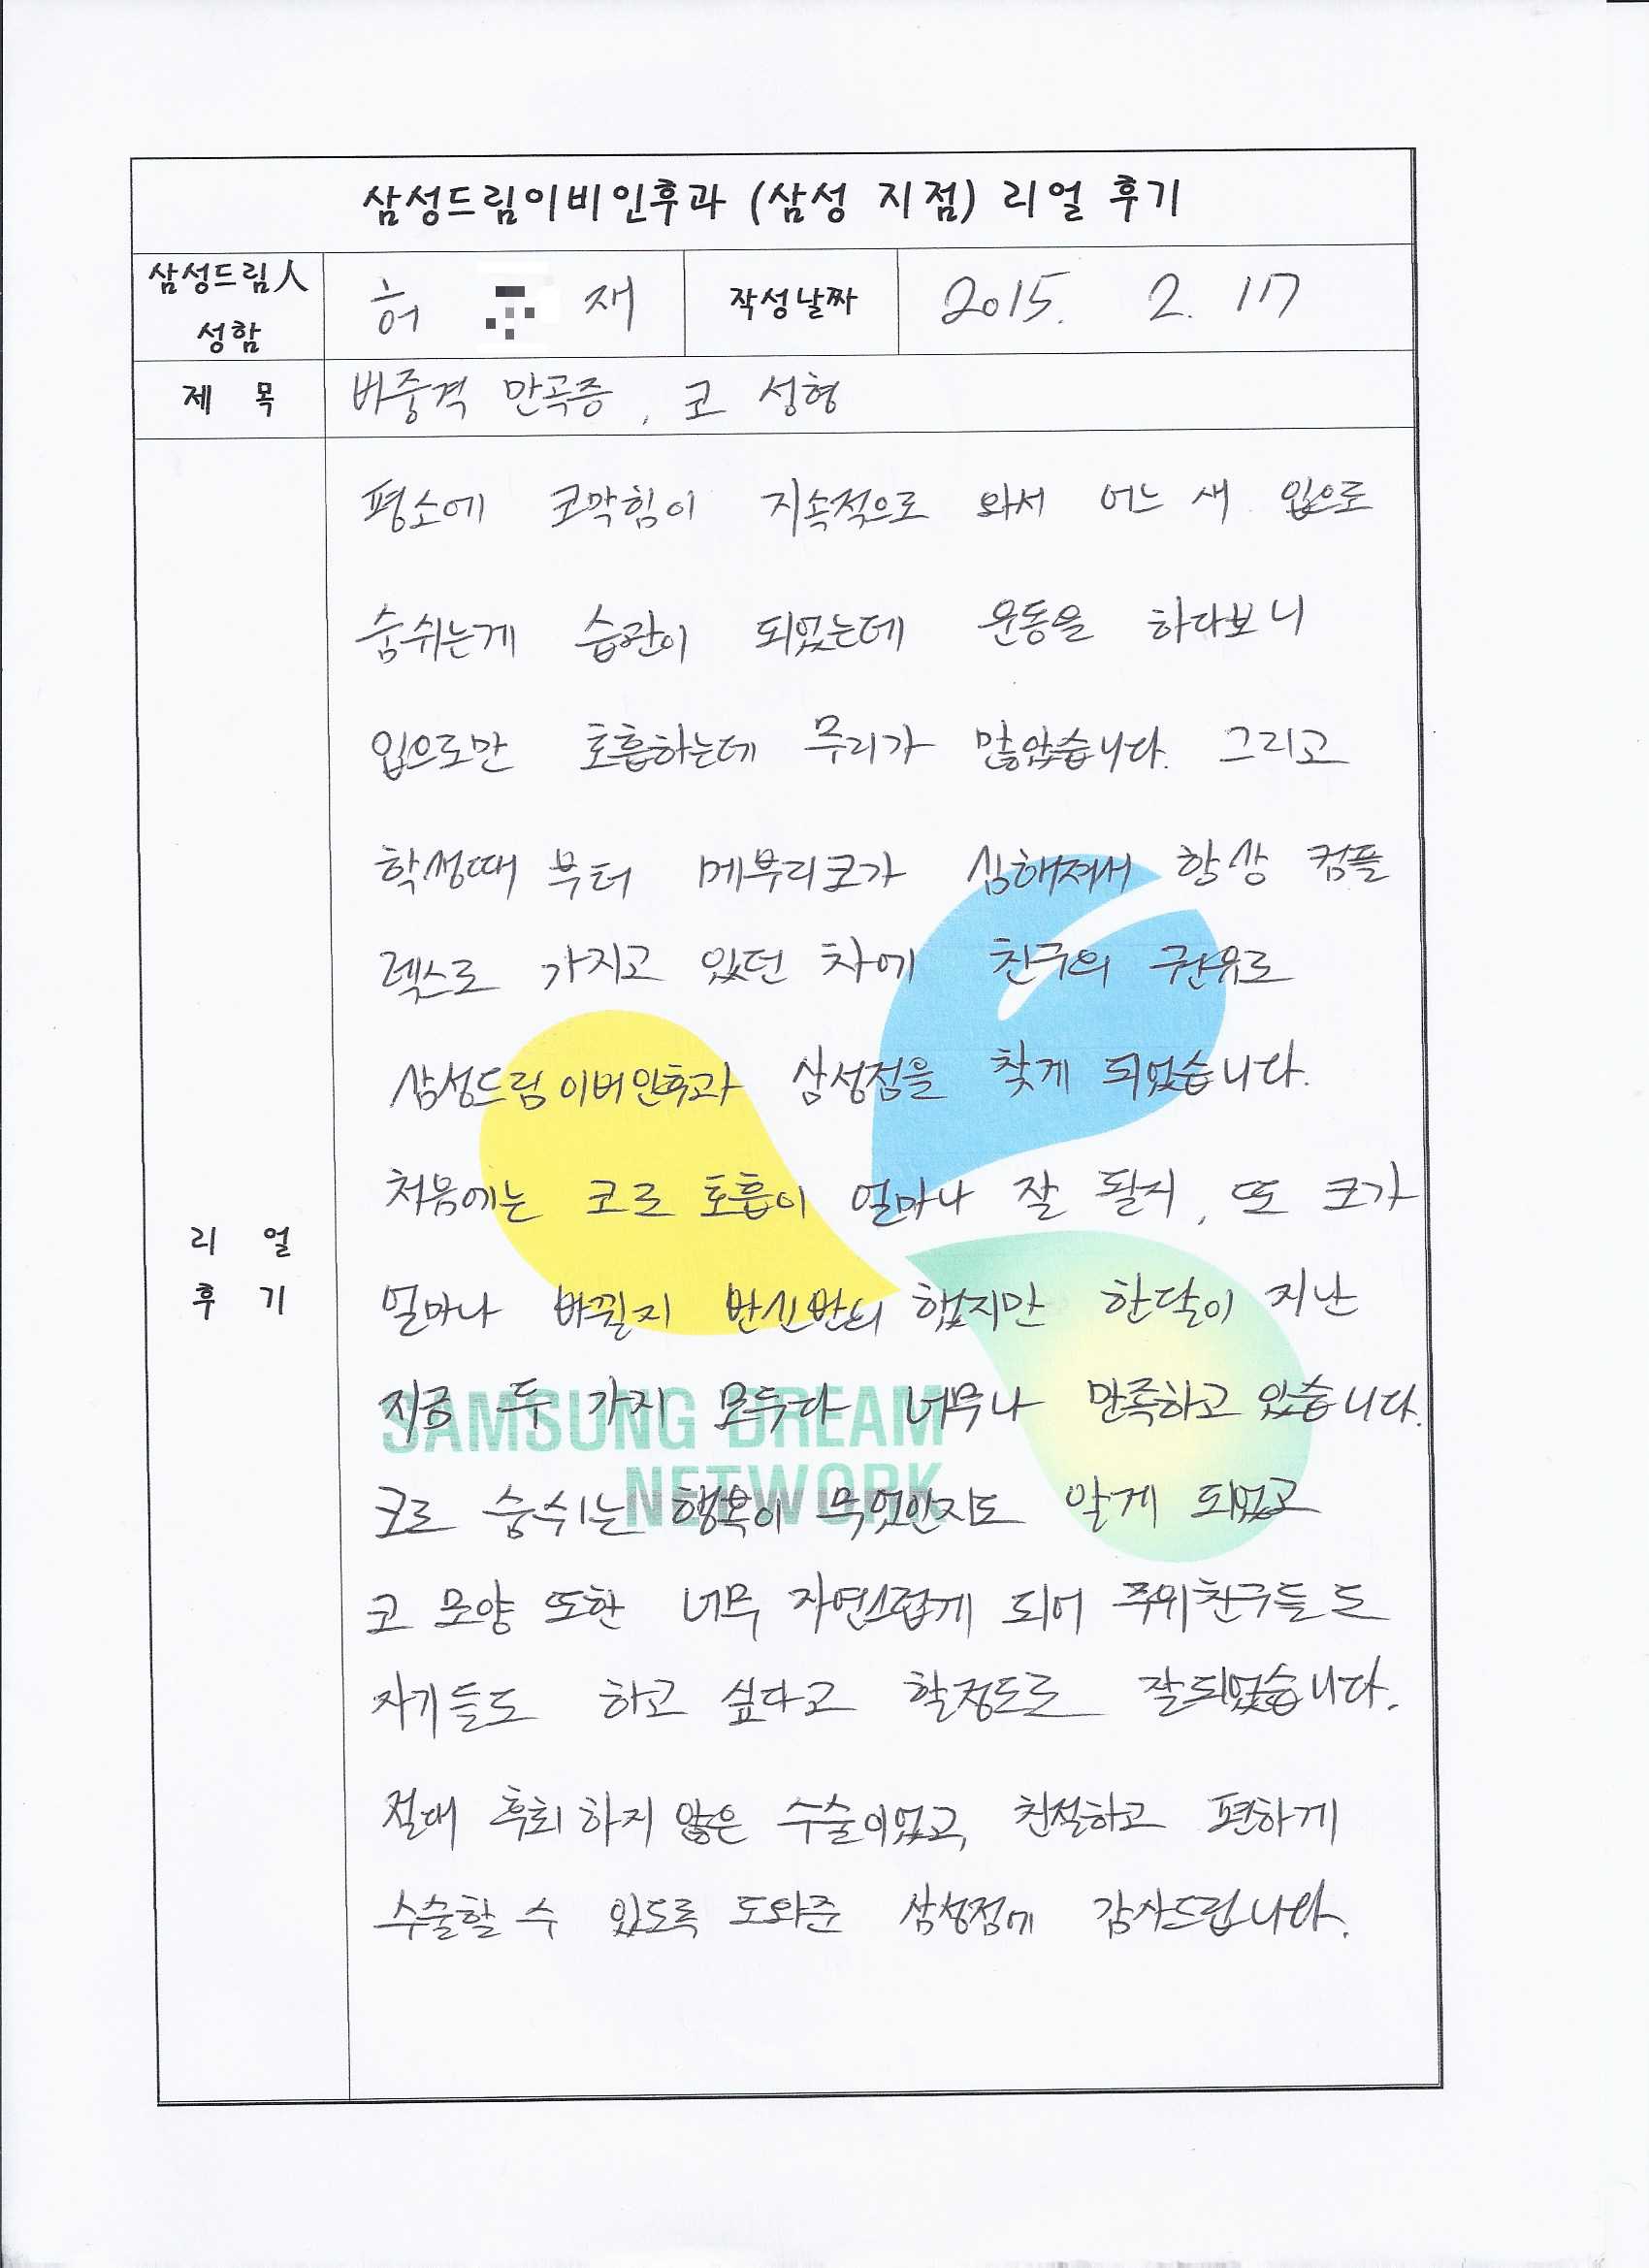 삼성드림이비인후과 (삼성 지점) 리얼 후기
삼성드림人
성함
허 재
작성날짜
2015. 2. 17
제 목
비중격 만곡증, 코 성형
평소에 코막힘이 지속적으로 와서 어느 새 입으로
숨쉬는게 습관이 되었는데 운동을 하다보니
입으로만 호흡하는데 무리가 많았습니다. 그리고
학생때 부터 메부리코가 심해져서 항상 컴플
렉스로 가지고 있던 차에 친구의 권유로
삼성드림이비인후과 삼성점을 찾게 되었습니다.
처음에는 코로 호흡이 얼마나 잘 될지, 또 코가
얼마나 바뀔지 반신반의 했지만 한달이 지난
지금 두 가지 모두다 너무나 만족하고 있습니다.
코로 숨쉬는 행복이 무엇인지도 알게 되었고
코 모양 또한 너무 자연스럽게 되어 주위친구들도
자기들도 하고 싶다고 할정도로 잘되었습니다.
절대 후회하지 않은 수술이었고, 친절하고 편하게
수술할 수 있도록 도와준 삼성점에 감사드립니다.
리 얼
후 기
SAMSUNG DREAM
NETWORK